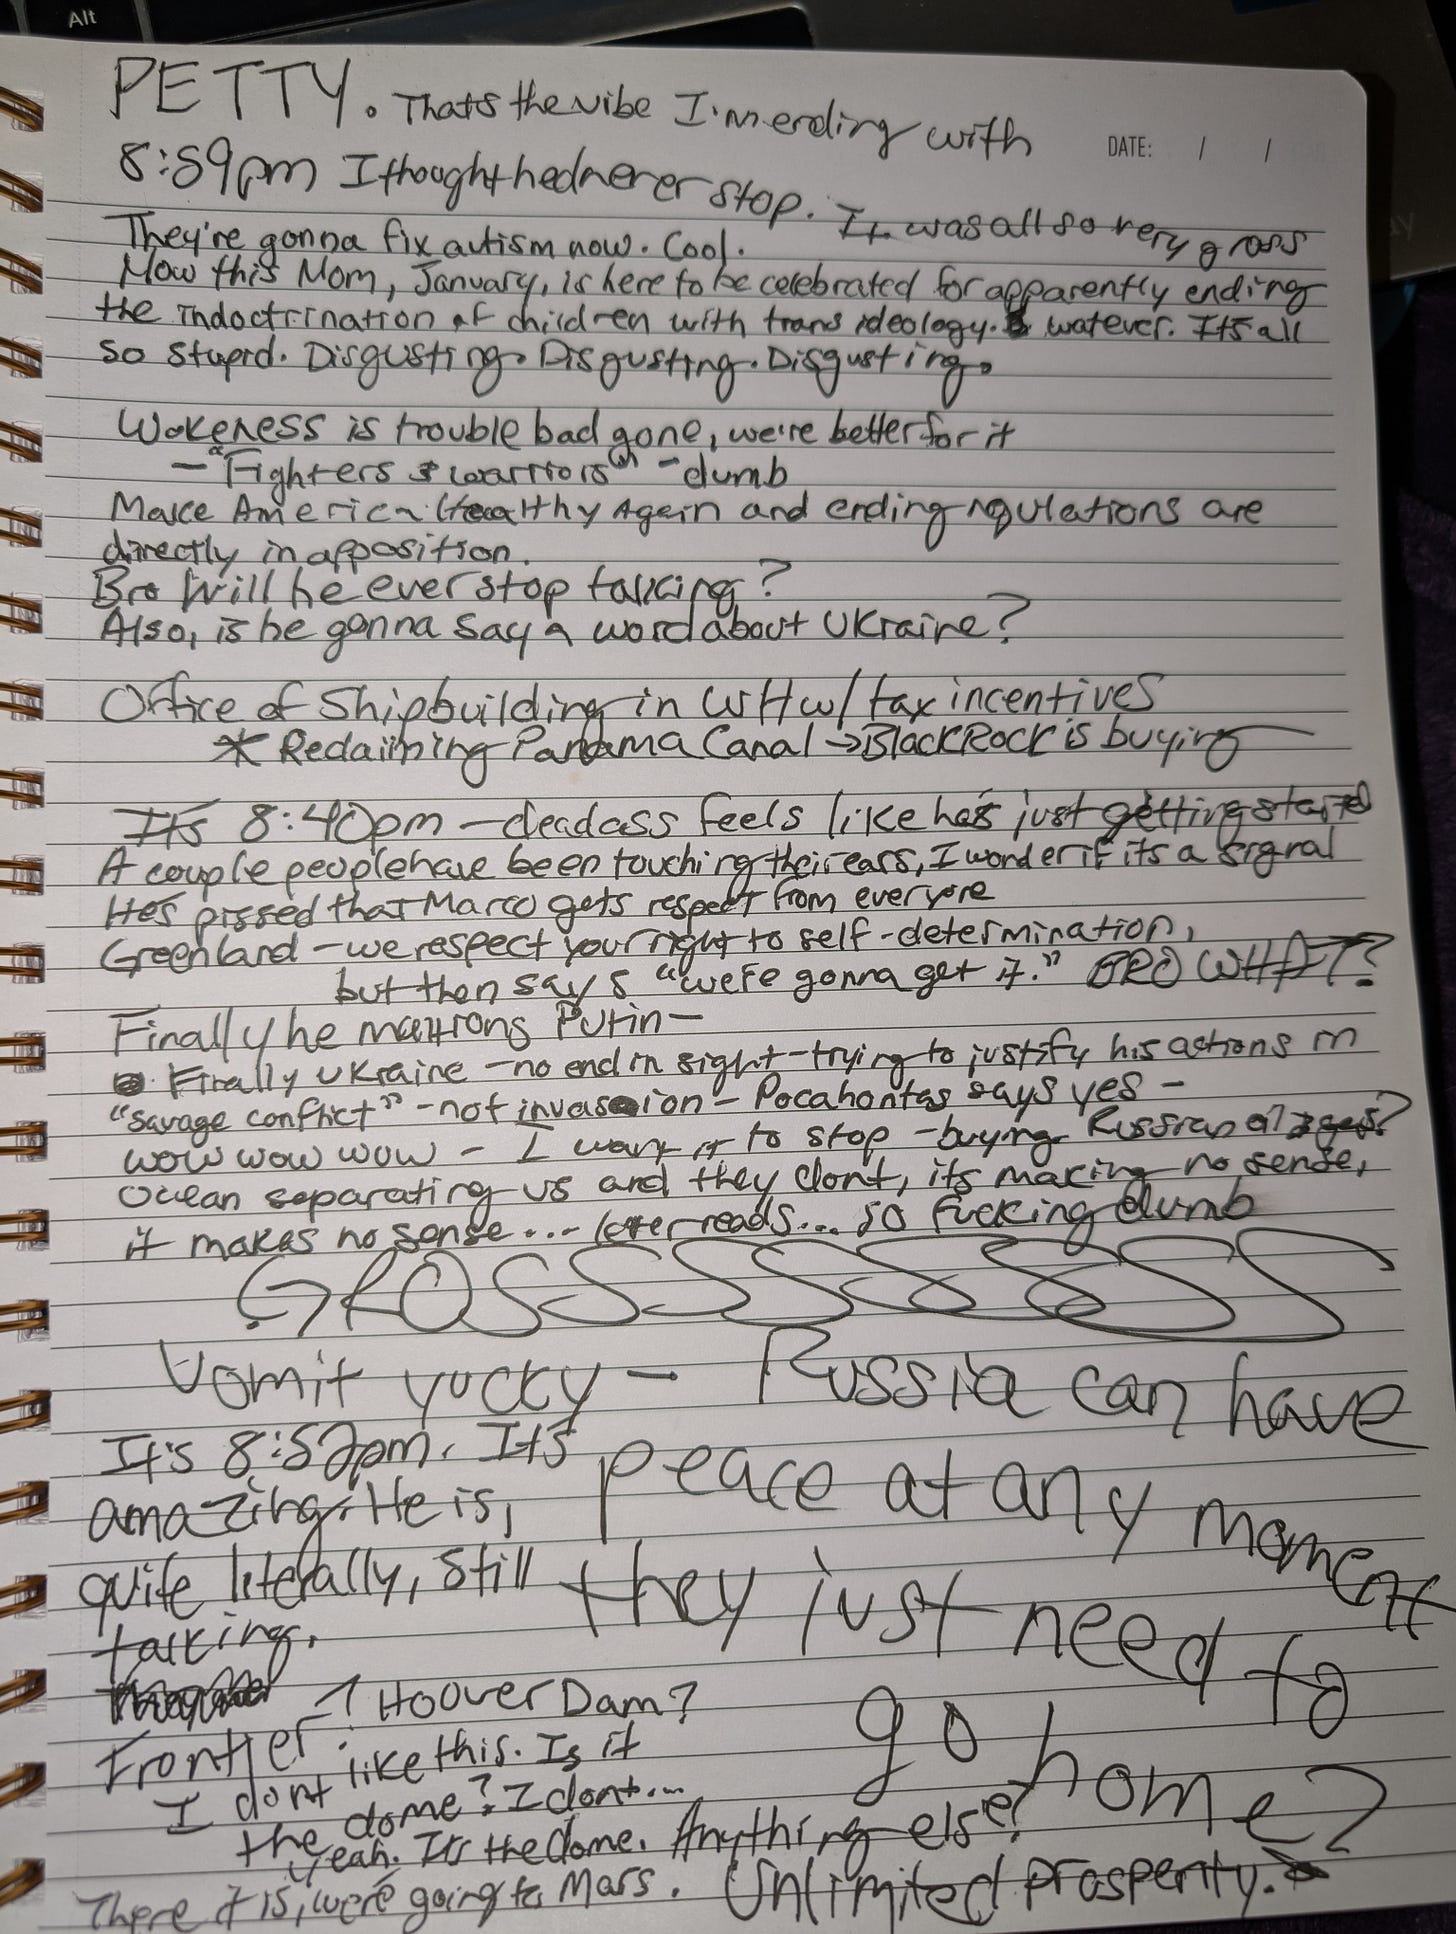 Alt
PETTY. Thats the vibe I'm ending with
DATE: / /
8:59pm I thought hed never stop. It was all so very gross
They're gonna fix autism now. Cool.
Now this Mom, January, is here to be celebrated for apparently ending
the indoctrination of children with trans ideology. watever. Its all
so stupid. Disgusting. Disgusting. Disgusting.
Wokeness is trouble bad gone, we're better for it
- "Fighters & warriors" - dumb
Make America Healthy Again and ending regulations are
directly in apposition.
Bro Will he ever stop talking?
Also, is he gonna say a word about Ukraine?
Office of Shipbuilding in WH w/ tax incentives
* Reclaiming Panama Canal → BlackRock is buying
It's 8:40pm - deadass feels like he's just getting started
A couple people have been touching their ears, I wonder if its a signal
He's pissed that Marco gets respect from everyone
Greenland - we respect your right to self-determination,
but then says "we're gonna get it." BRO WHAT?
Finally he mentions Putin -
Finally Ukraine - no end in sight - trying to justify his actions in
"savage conflict" - not invasion - Pocahontas says yes -
wow wow wow - I want it to stop - buying Russian oil & gas?
Ocean separating us and they dont, its making no sense,
it makes no sense... - letter reads... so fucking dumb
GROSSSSSSSS
Vomit yucky - Russia can have
peace at any moment
they just need to
go home?
It's 8:52pm. It's
amazing. He is,
quite literally, still
talking.
Frontier? Hoover Dam?
I dont like this. Is it
the dome? I dont...
yeah. It's the dome. Anything else?
There it is, we're going to Mars. Unlimited prosperity.